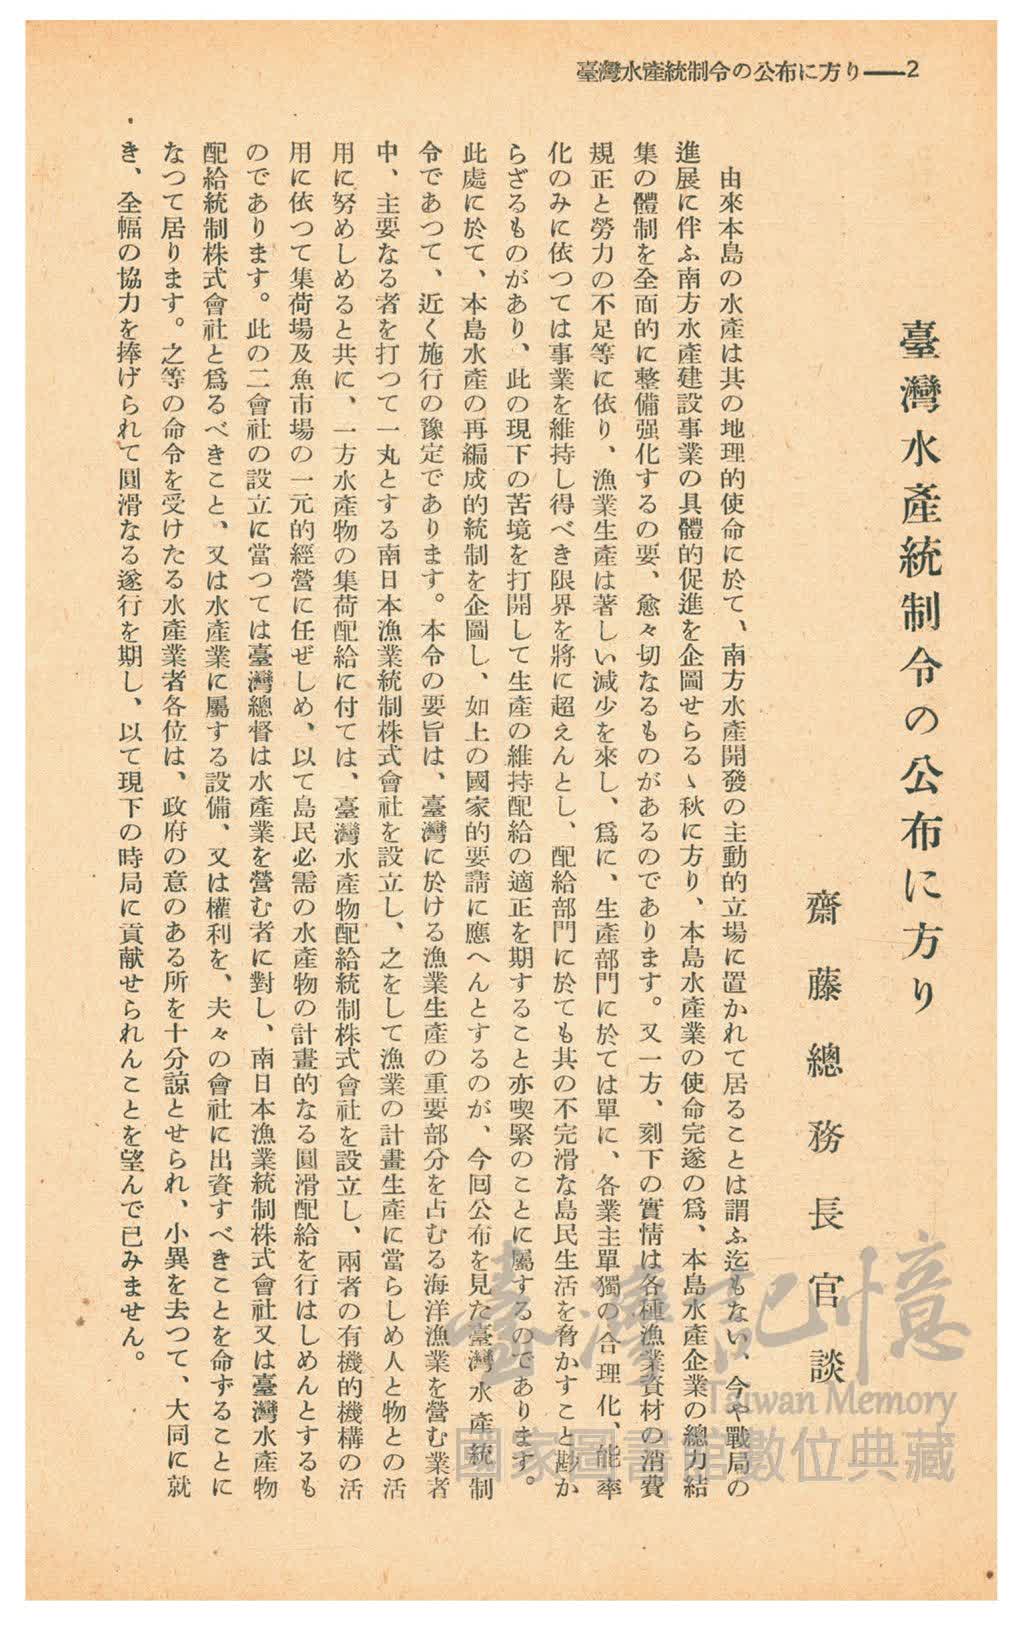 臺灣水產統制令の公布に方り——2
臺灣水產統制令の公布に方り
齋藤總務長官談
由來本島の水產は其の地理的使命に於て、南方水產開發の主動的立場に置かれて居ることは謂ふ迄もない、今や戰局の
進展に伴ふ南方水產建設事業の具體的促進を企圖せらるゝ秋に方り、本島水產業の使命完遂の爲、本島水產企業の總力結
集の體制を全面的に整備强化するの要、愈々切なるものがあるのであります。又一方、刻下の實情は各種漁業資材の消費
規正と勞力の不足等に依り、漁業生產は著しい減少を來し、爲に、生產部門に於ては單に、各業主單獨の合理化、能率
化のみに依つては事業を維持し得べき限界を將に超えんとし、配給部門に於ても其の不完滑な島民生活を脅かすこと尠か
らざるものがあり、此の現下の苦境を打開して生產の維持配給の適正を期すること亦喫緊のことに屬するのであります。
此處に於て、本島水產の再編成的統制を企圖し、如上の國家的要請に應へんとするのが、今回公布を見た臺灣水產統制
令であつて、近く施行の豫定であります。本令の要旨は、臺灣に於ける漁業生產の重要部分を占むる海洋漁業を營む業者
中、主要なる者を打つて一丸とする南日本漁業統制株式會社を設立し、之をして漁業の計畫生產に當らしめ人と物との活
用に努めしめると共に、一方水產物の集荷配給に付ては、臺灣水產物配給統制株式會社を設立し、兩者の有機的機構の活
用に依つて集荷場及魚市場の一元的經營に任ぜしめ、以て島民必需の水產物の計畫的なる圓滑配給を行はしめんとするも
のであります。此の二會社の設立に當つては臺灣總督は水產業を營む者に對し、南日本漁業統制株式會社又は臺灣水產物
配給統制株式會社と爲るべきこと、又は水產業に屬する設備、又は權利を、夫々の會社に出資すべきことを命ずることに
なつて居ります。之等の命令を受けたる水產業者各位は、政府の意のある所を十分諒とせられ、小異を去つて、大同に就
き、全幅の協力を捧げられて圓滑なる遂行を期し、以て現下の時局に貢献せられんことを望んで已みません。
臺灣記憶
Taiwan Memory
國家圖書館數位典藏